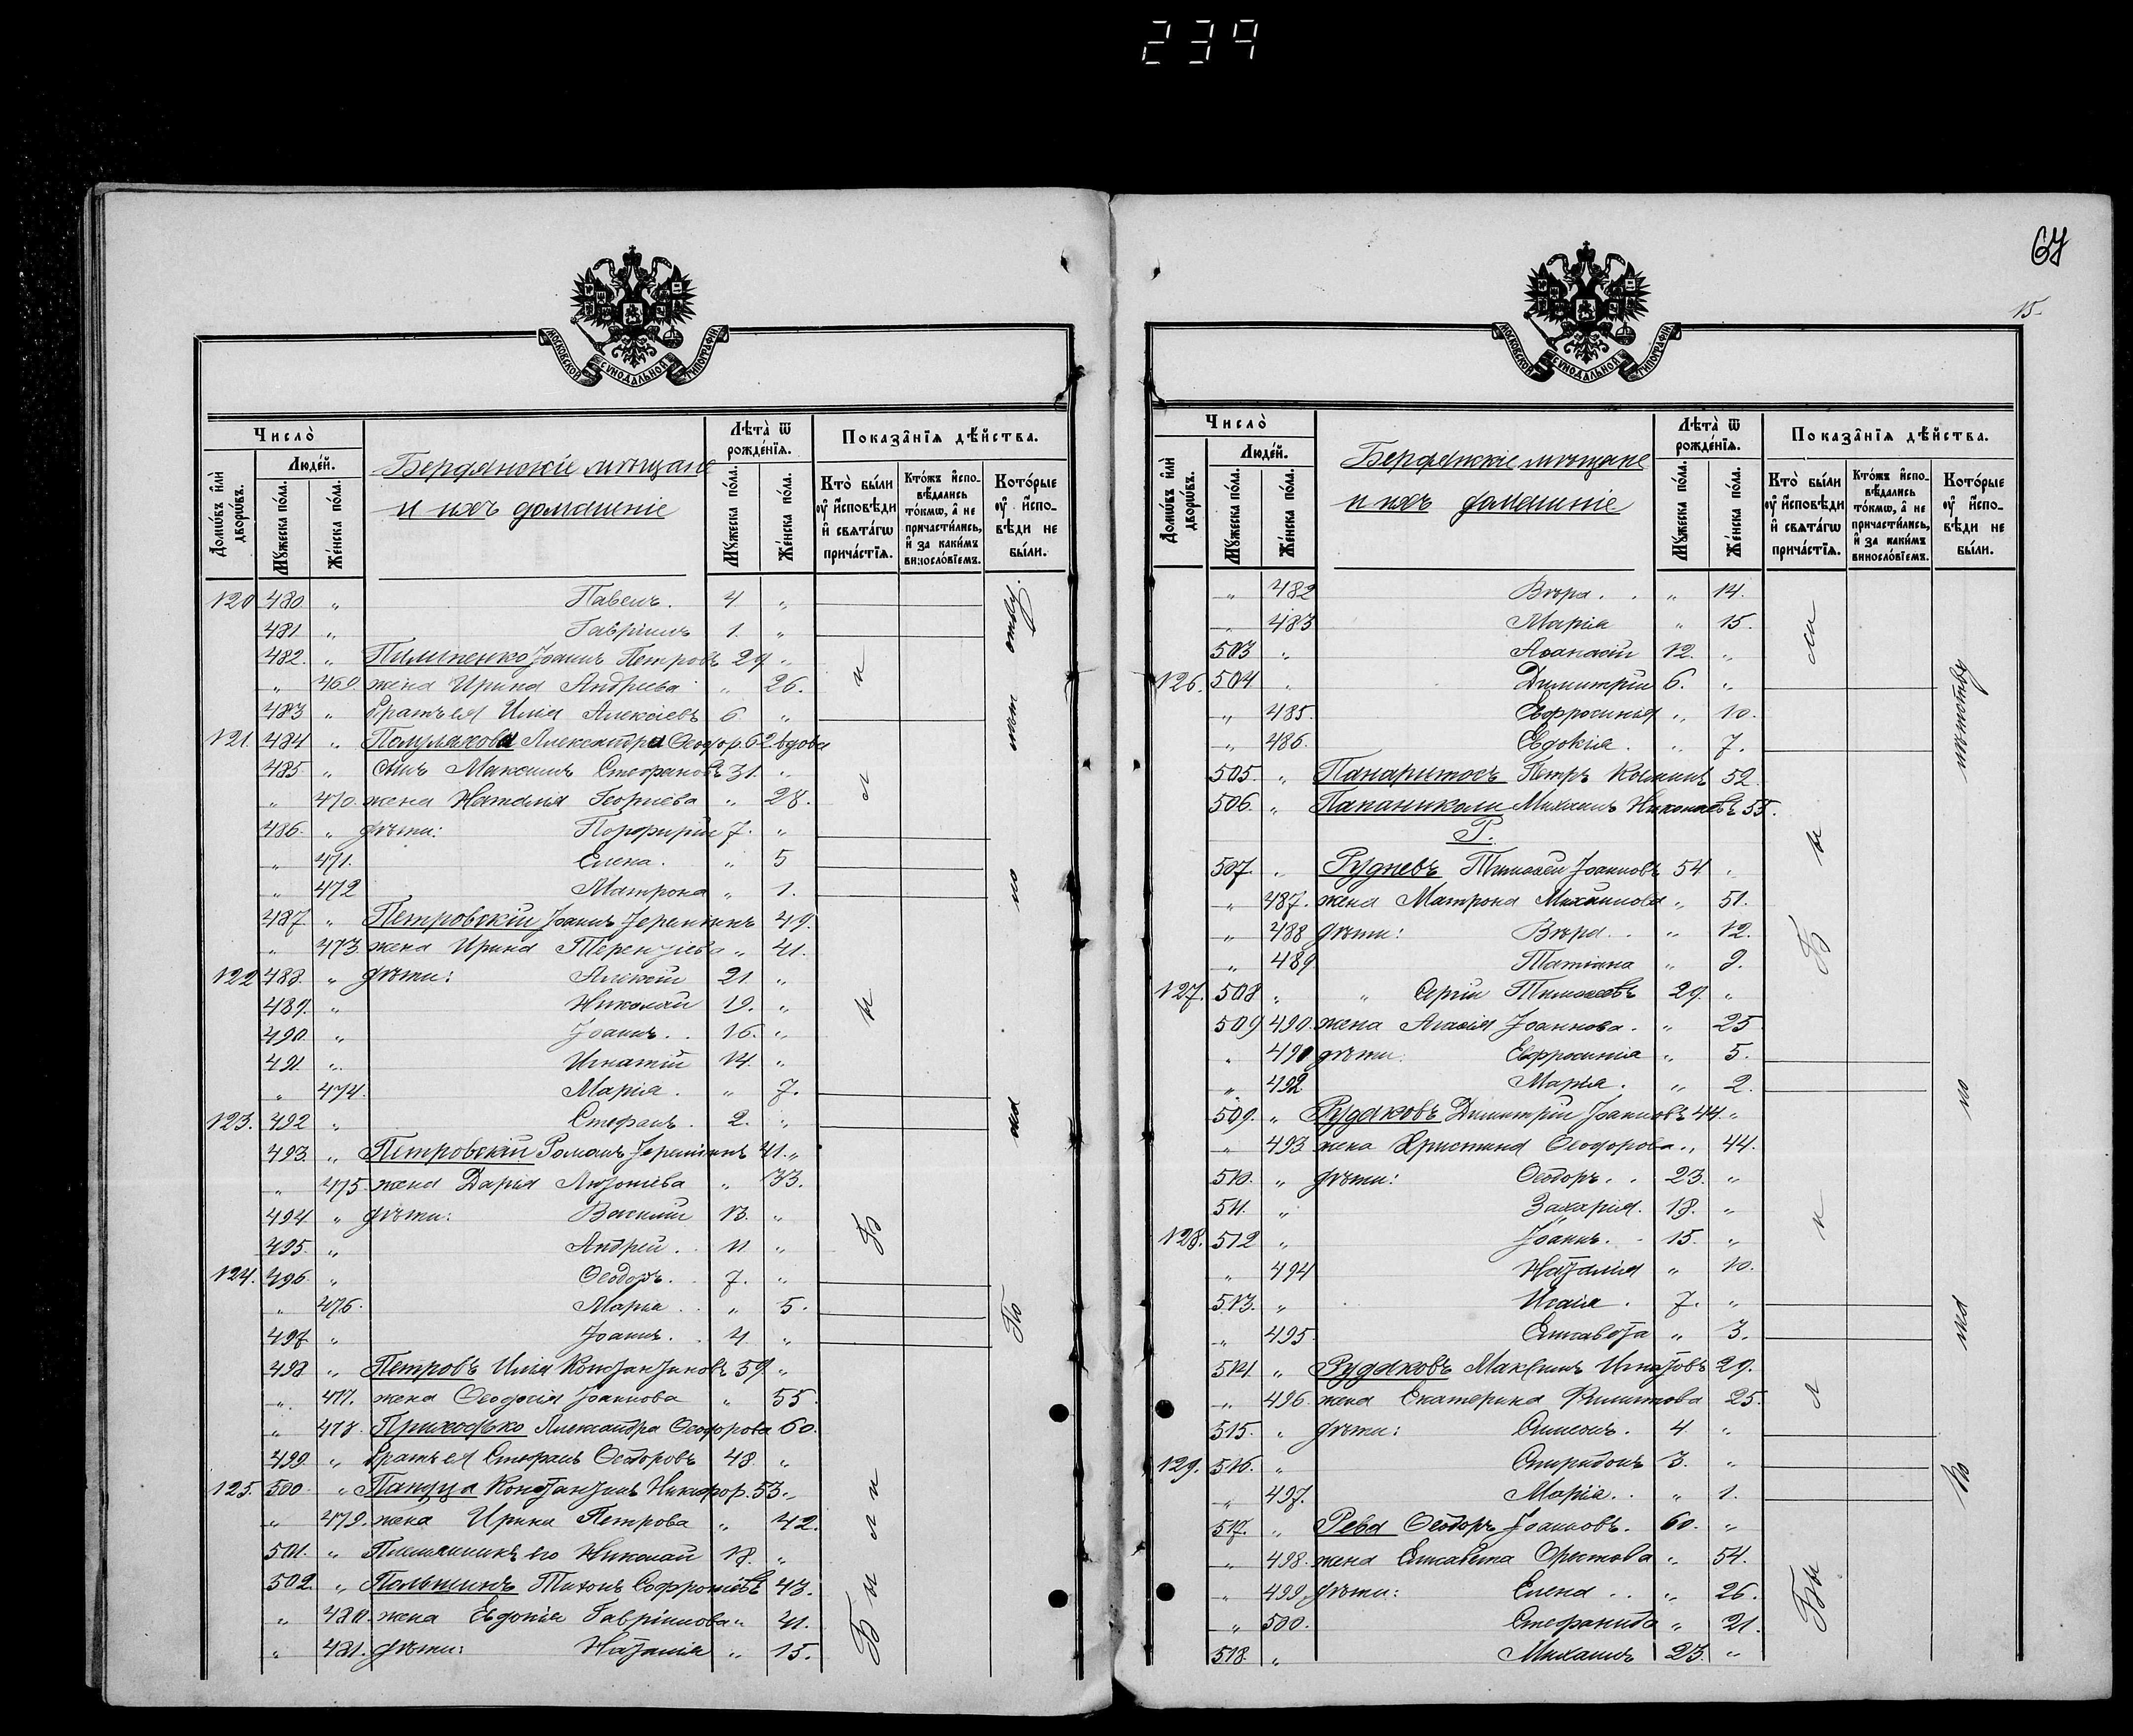 239
67
15.
МОСКОВСКОЙ СУНОДАЛЬНОЙ ТИПОГРАФІИ
Число̀
Домѡ́въ и҆лѝ дворѡ́въ.
Люде́й.
Мꙋ́жеска по́ла.
Же́нска по́ла.
Бердянскіе мѣщане
и ихъ домашніе
Лѣта̀ ѿ рожде́нїѧ.
Мꙋ́жеска по́ла.
Же́нска по́ла.
Показа̑нїѧ дѣ́йства.
Кто̀ бы́ли ᲂу҆ и҆сповѣ́ди и҆ свѧта́гѡ прича́стїѧ.
Кто́жъ и҆спо-вѣ́дались то́кмѡ, а҆ не причасти́лись, и҆ за каки́мъ виносло́вїемъ.
Кото́рые ᲂу҆ и҆спо-вѣ́ди не бы́ли.
120 480 " Павелъ. 4 "
481 " Гавріилъ 1. "
482. " Пилипенко Іоаннъ Петровъ 29 "
" 469. жена Ирина Андреева " 26.
483 " братъ ея Илія Алексіевъ 6 "
121. 484 " Александра Ѳеодор. 62. вдова
485 " сынъ Максимъ Стефановъ 31. "
" 470. жена Наталія Георгіева " 28.
486. " дѣти: Порфирій 7. "
" 471. Елена. " 5
" 472 Матрона " 1.
487. " Петровскій Іоаннъ 49.
" 473. жена Ирина Терентіева " 41.
122 488. " дѣти: Алексій 21. "
489. " Николай 19. "
490. " Іоаннъ. 16. "
491 " Игнатій 14. "
" 474. Марія. " 7.
123. 492 " Стефанъ. 2. "
493. " Петровскій Романъ 41. "
" 475. жена Дарія " 33.
494 " дѣти: Василій 13. "
495. " Андрей. 11 "
124. 496. " Ѳеодоръ. 7. "
" 476. Марія. " 5.
497 " Іоаннъ. 4 "
498 " Петровъ Илія Константиновъ 59. "
" 477. жена Ѳеодосія Іоаннова " 55
" 478. Приходько Александра Ѳеодорова 60.
499. " братъ ея Стефанъ Ѳеодоровъ 48. "
125. 500 " Константинъ Никифор. 53. "
" 479. жена Ирина Петрова " 42.
501. " Племянникъ его Николай 18. "
502. " Тихонъ Софроніевъ 43.
" 480. жена Евдокія Гавріилова " 41.
" 481. дѣти: Наталія " 15.
Были
По мало отсу.
Число̀
Домѡ́въ и҆лѝ дворѡ́въ.
Люде́й.
Мꙋ́жеска по́ла.
Же́нска по́ла.
Бердянскіе мѣщане
и ихъ домашніе
Лѣта̀ ѿ рожде́нїѧ.
Мꙋ́жеска по́ла.
Же́нска по́ла.
Показа̑нїѧ дѣ́йства.
Кто̀ бы́ли ᲂу҆ и҆сповѣ́ди и҆ свѧта́гѡ прича́стїѧ.
Кто́жъ и҆спо-вѣ́дались то́кмѡ, а҆ не причасти́лись, и҆ за каки́мъ виносло́вїемъ.
Кото́рые ᲂу҆ и҆спо-вѣ́ди не бы́ли.
" 482 Вѣра. " 14.
" 483 Марія " 15.
503 " Аѳанасій 12. "
126. 504 " Димитрій 6. "
" 485. Евфросинія " 10.
" 486. Евдокія. " 7.
505. " Петръ 52
506. " Папаниколи Михаилъ Николаевъ 55.
Р.
507. " Рудневъ Тимоѳей Іоанновъ 54 "
" 487. жена Матрона Михаилова " 51.
" 488 дѣти: Вѣра. " 12.
" 489 Татіана " 9.
127. 508 " " Сергій Тимоѳеевъ 29. "
509 490. жена Агаѳія Іоаннова. " 25
" 491 дѣти. Евфросинія " 5.
" 492 Марія. " 2.
509. " Рудаковъ Димитрій Іоанновъ 44 "
" 493 жена Христина Ѳеодорова " 44.
510. " дѣти: Ѳеодоръ. 23. "
511. " Захарія. 18. "
128. 512 " Іоаннъ. 15. "
" 494 Наталія " 10.
513. " Исаія. 7. "
" 495. Елисавета " 3.
514. " Рудаковъ Максимъ Игнатовъ 29.
" 496. жена Екатерина Филиппова 25.
515. " дѣти: Симеонъ. 4 "
129. 516. " Спиридонъ 3. "
" 497. Марія. " 1.
517. " Рева Ѳеодоръ Іоанновъ. 60. "
" 498. жена Елисавета Орестова " 54.
" 499. дѣти: Елена " 26.
" 500. Стефанида " 21.
518. " Михаилъ 23. "
Были
По малолѣтству